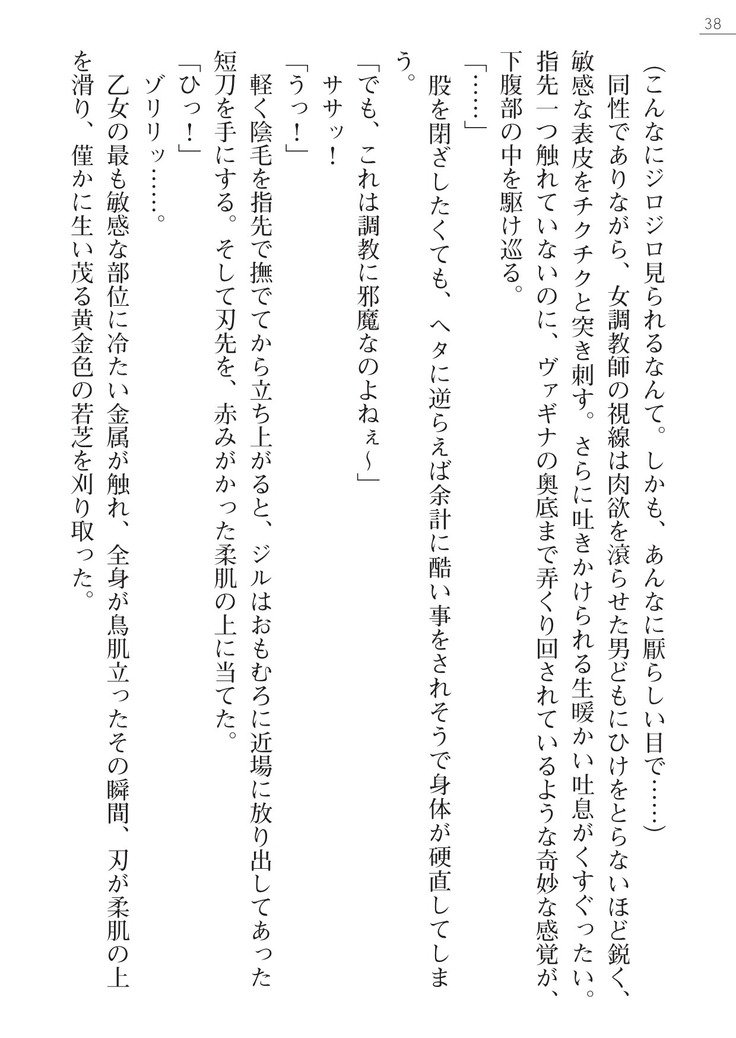 38
(こんなにジロジロ見られるなんて。しかも、あんなに厭らしい目で……)
同性でありながら、女調教師の視線は肉欲を滾らせた男どもにひけをとらないほど鋭く、
敏感な表皮をチクチクと突き刺す。さらに吐きかけられる生暖かい吐息がくすぐったい。
指先一つ触れていないのに、ヴァギナの奥底まで弄くり回されているような奇妙な感覚が、
下腹部の中を駆け巡る。
「……」
股を閉ざしたくても、ヘタに逆らえば余計に酷い事をされそうで身体が硬直してしま
う。
「でも、これは調教に邪魔なのよねぇ～」
ササッ！
「うっ！」
軽く陰毛を指先で撫でてから立ち上がると、ジルはおもむろに近場に放り出してあった
短刀を手にする。そして刃先を、赤みがかった柔肌の上に当てた。
「ひっ！」
ゾリリッ……。
乙女の最も敏感な部位に冷たい金属が触れ、全身が鳥肌立ったその瞬間、刃が柔肌の上
を滑り、僅かに生い茂る黄金色の若芝を刈り取った。